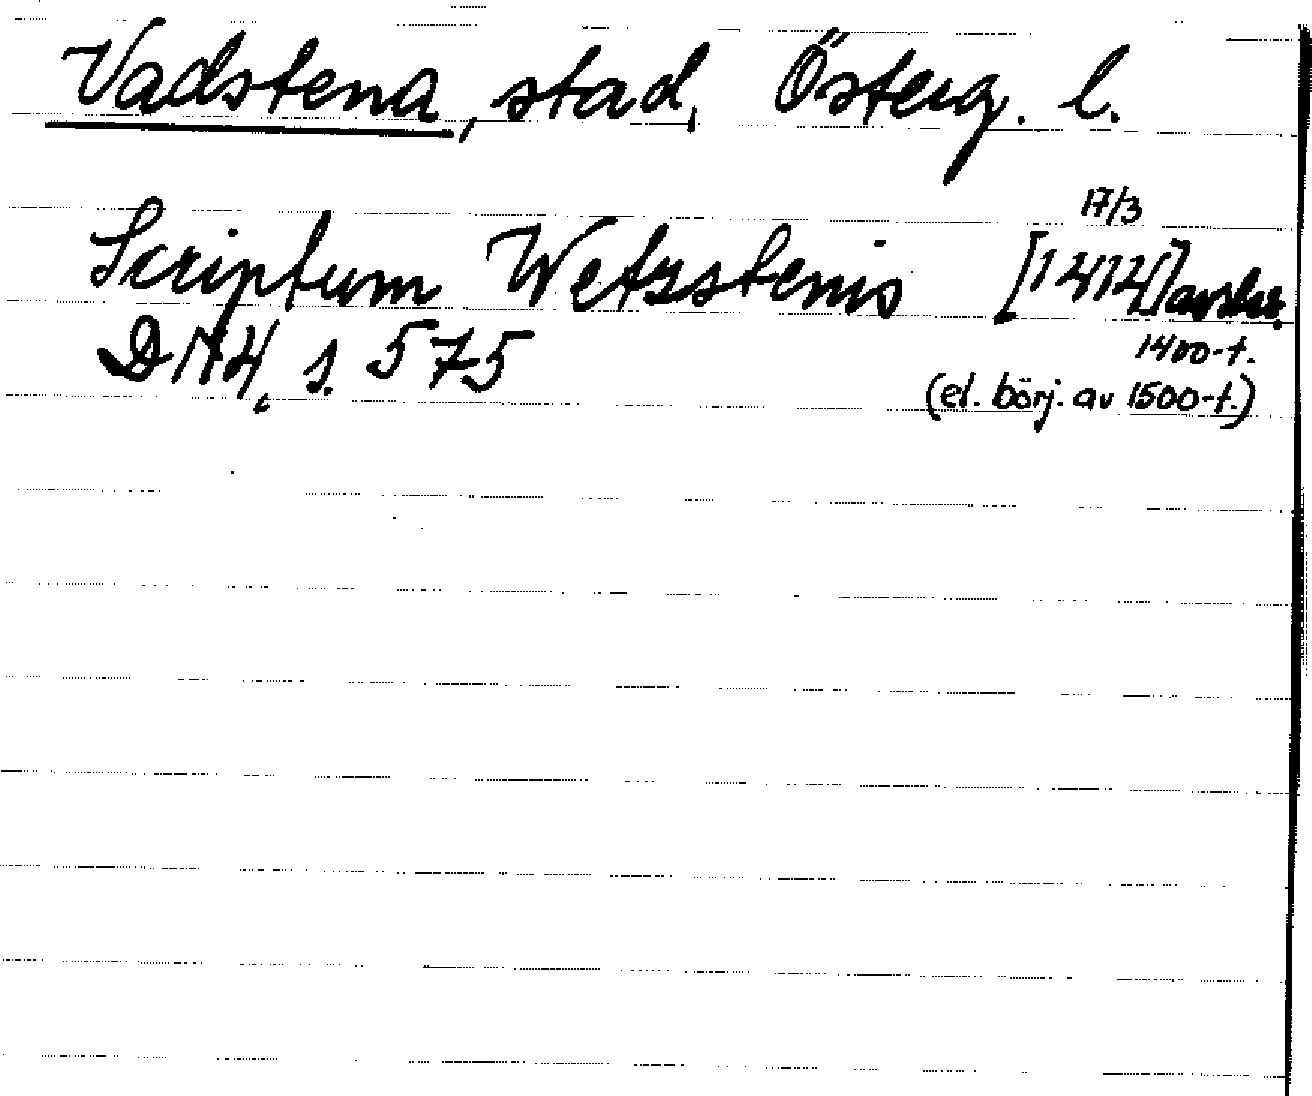 Vadstena, stad, Österg. l.
17/3
Scriptum Wetzstenis [1412] avskr.
DN 4, s. 575 1400-t.
(el. börj. av 1500-t.)